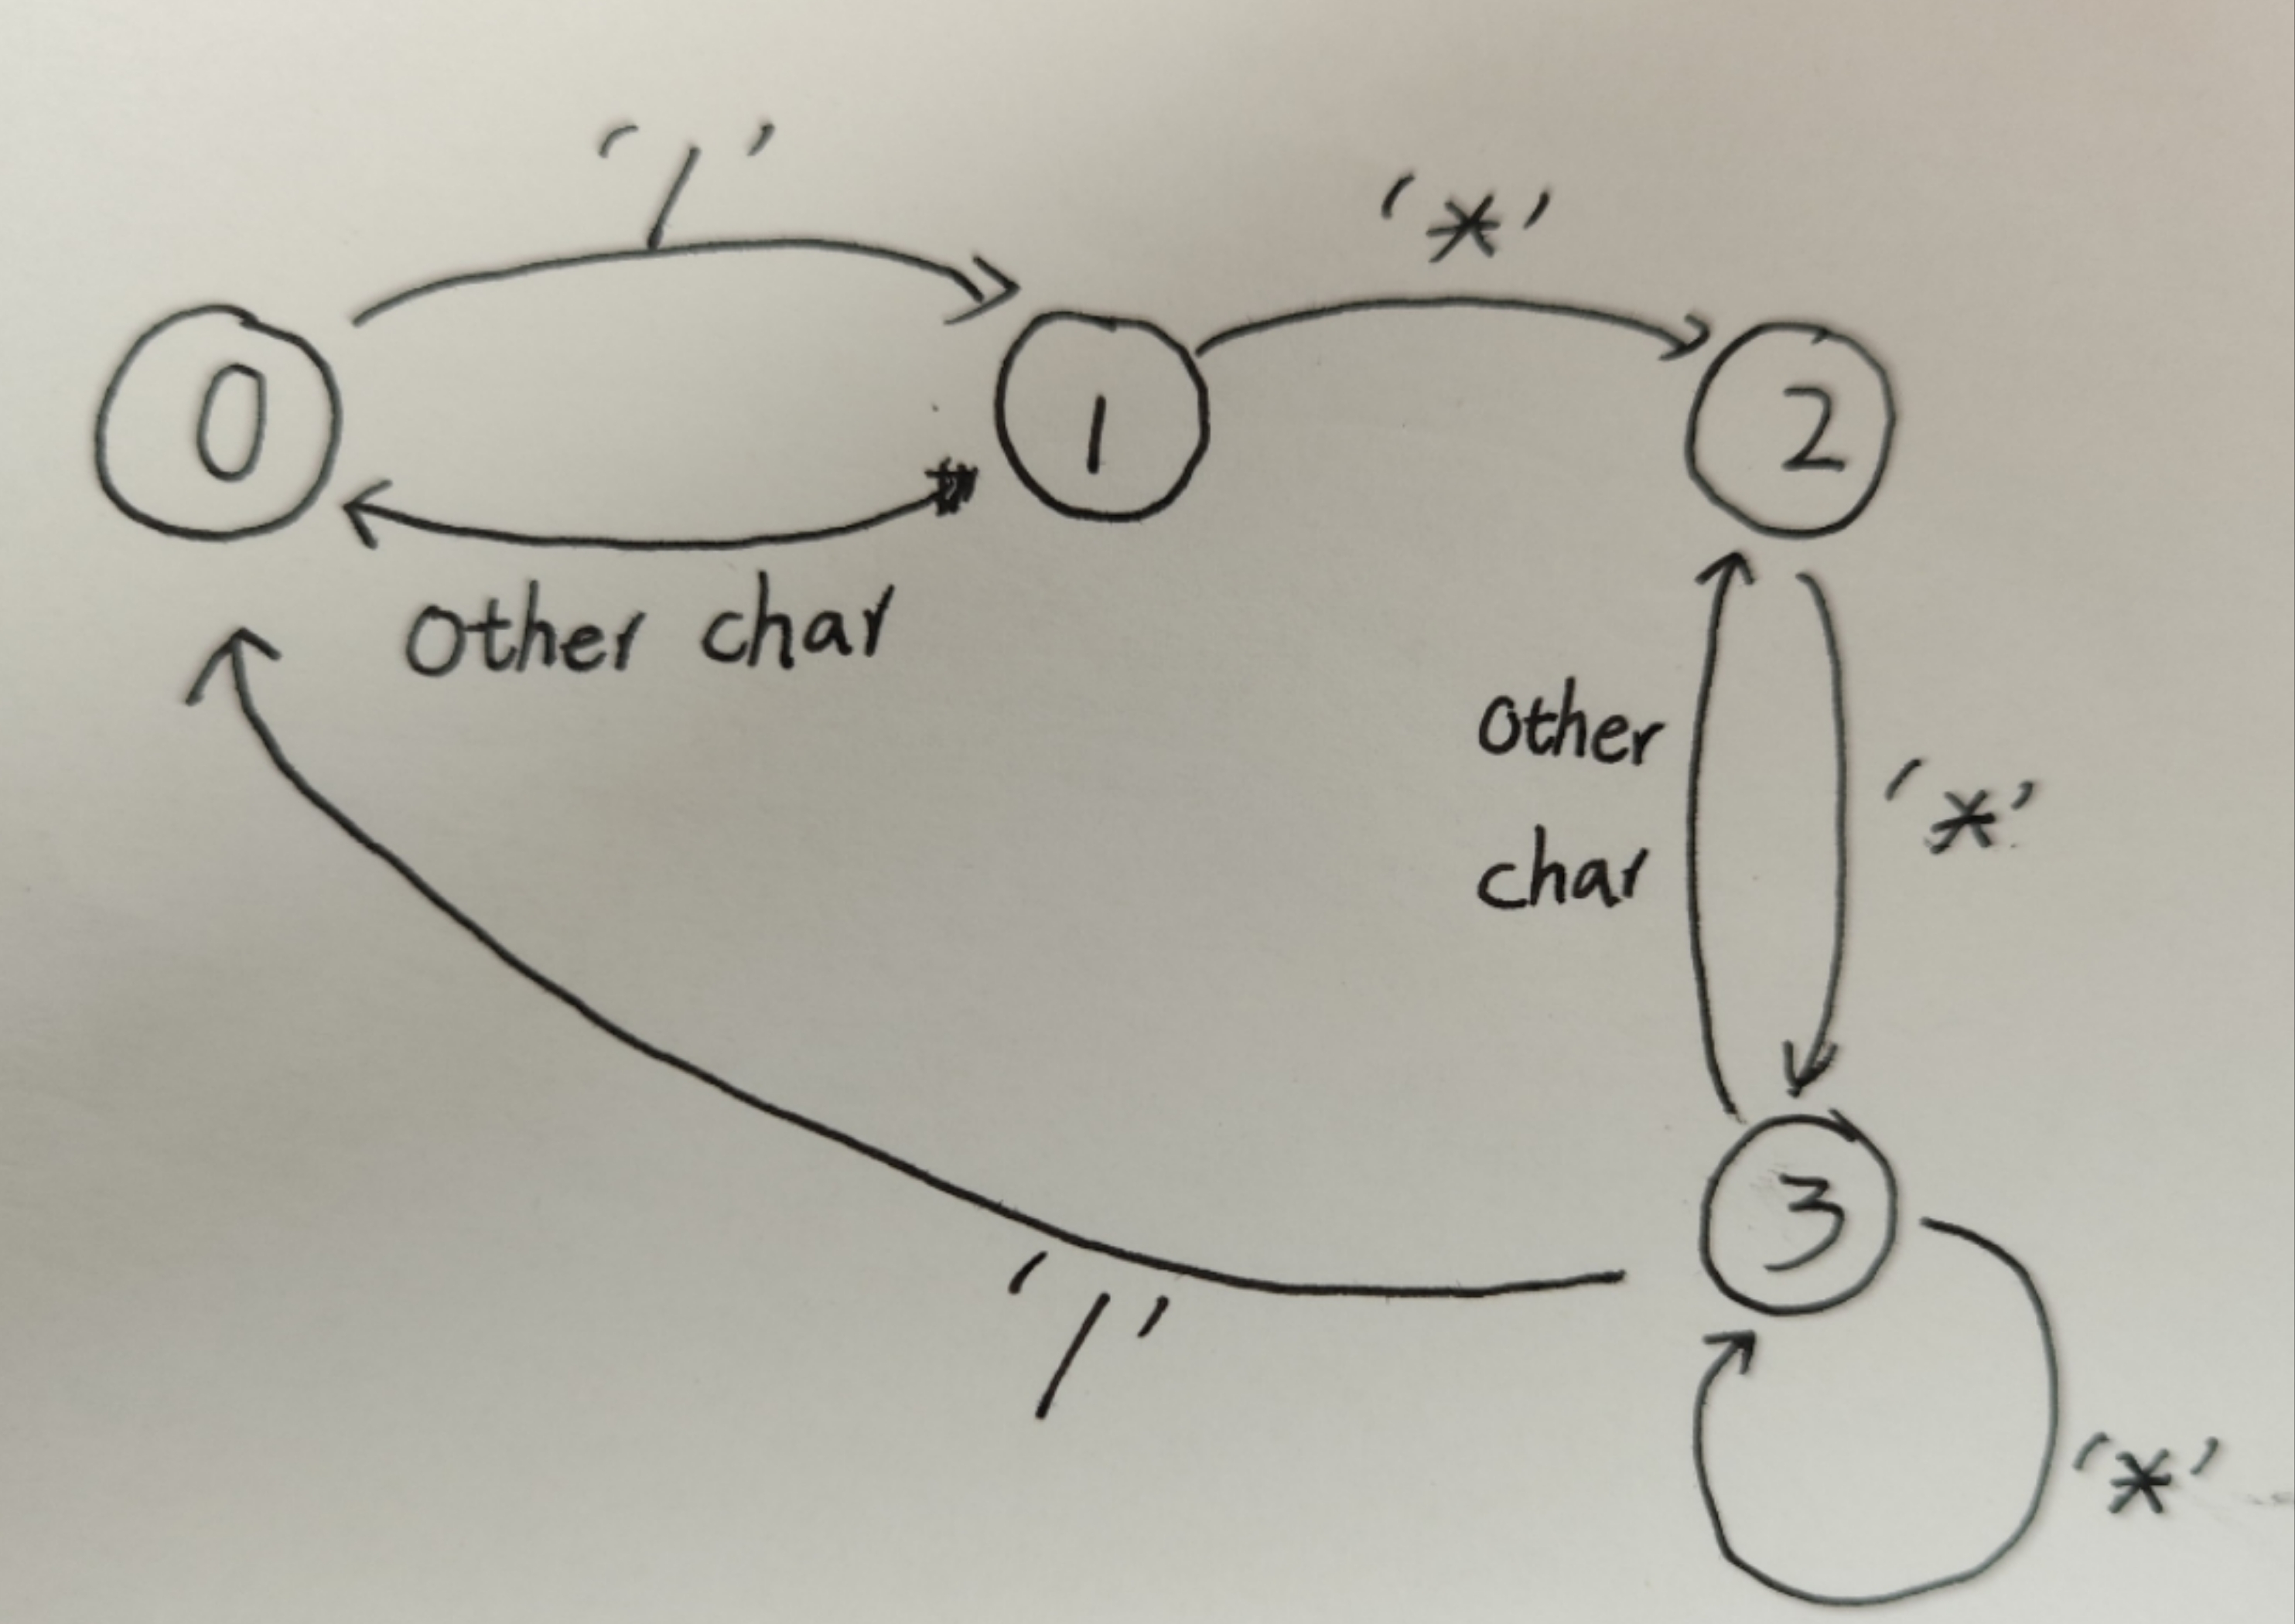 '/'
'*'
0
1
2
Other char
Other
char
'*'
3
'/'
'*'